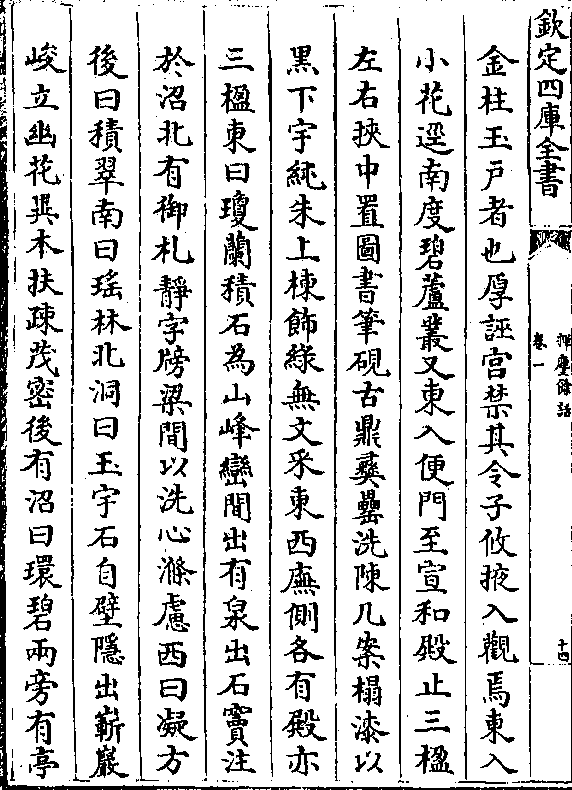 欽定四庫全書
揮麈餘話
卷一
十四
金柱玉戸者也厚誣宫禁其令子攸掖入觀焉東入
小花逕南度碧蘆叢又東入便門至宣和殿止三楹
左右挾中置圖書筆硯古鼎彝罍洗陳几案榻漆以
黑下宇純朱上棟飾緑無文采東西廡側各有殿亦
三楹東曰瓊蘭積石為山峰巒間出有泉出石竇注
於沼北有御札靜字牓梁間以洗心滌慮西曰凝方
後曰積翠南曰瑤林北洞曰玉宇石自壁隱出嶄巖
峻立幽花異木扶疎茂密後有沼曰環碧兩旁有亭